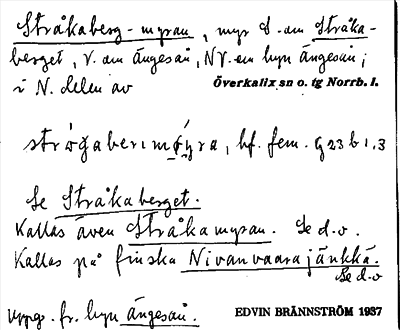 Stråkaberg-myran, myr S. om Stråka-
berget, V. om Ängesån, NV. om byn Ängesån;
i N. delen av Överkalix sn o. tg Norrb. l.
bf. fem. G 23 b 1,3
Se Stråkaberget.
Kallas även Stråkamyran. Se d.o.
Kallas på finska Nivanvaarajänkkä.
Se d.o
Uppg. fr. byn Ängesån. EDVIN BRÄNNSTRÖM 1937